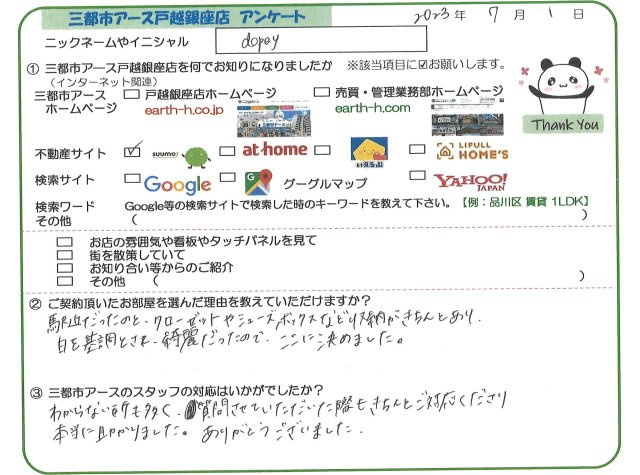 三都市アース戸越銀座店 アンケート
2023年 7月 1日
ニックネームやイニシャル dopey
① 三都市アース戸越銀座店を何でお知りになりましたか ※該当項目に☑お願いします。
(インターネット関連)
三都市アース ホームページ □ 戸越銀座店ホームページ □ 売買・管理業務部ホームページ
earth-h.co.jp earth-h.com
Thank You
不動産サイト ☑ suumo □ at home □ いえらぶ □ LIFULL HOME'S
検索サイト □ Google □ グーグルマップ □ YAHOO! JAPAN
検索ワード Google等の検索サイトで検索した時のキーワードを教えて下さい。【例:品川区 賃貸 1LDK】
その他 ( )
□ お店の雰囲気や看板やタッチパネルを見て
□ 街を散策していて
□ お知り合い等からのご紹介
□ その他 ( )
② ご契約頂いたお部屋を選んだ理由を教えていただけますか?
駅近だったのと、クローゼットやシューズボックスなど収納がきちんとあり、
白を基調とされ、綺麗だったので、ここに決めました。
③ 三都市アースのスタッフの対応はいかがでしたか?
わからない所も多く、質問させていただいた際もきちんとご対応くださり
本当に助かりました。ありがとうございました。